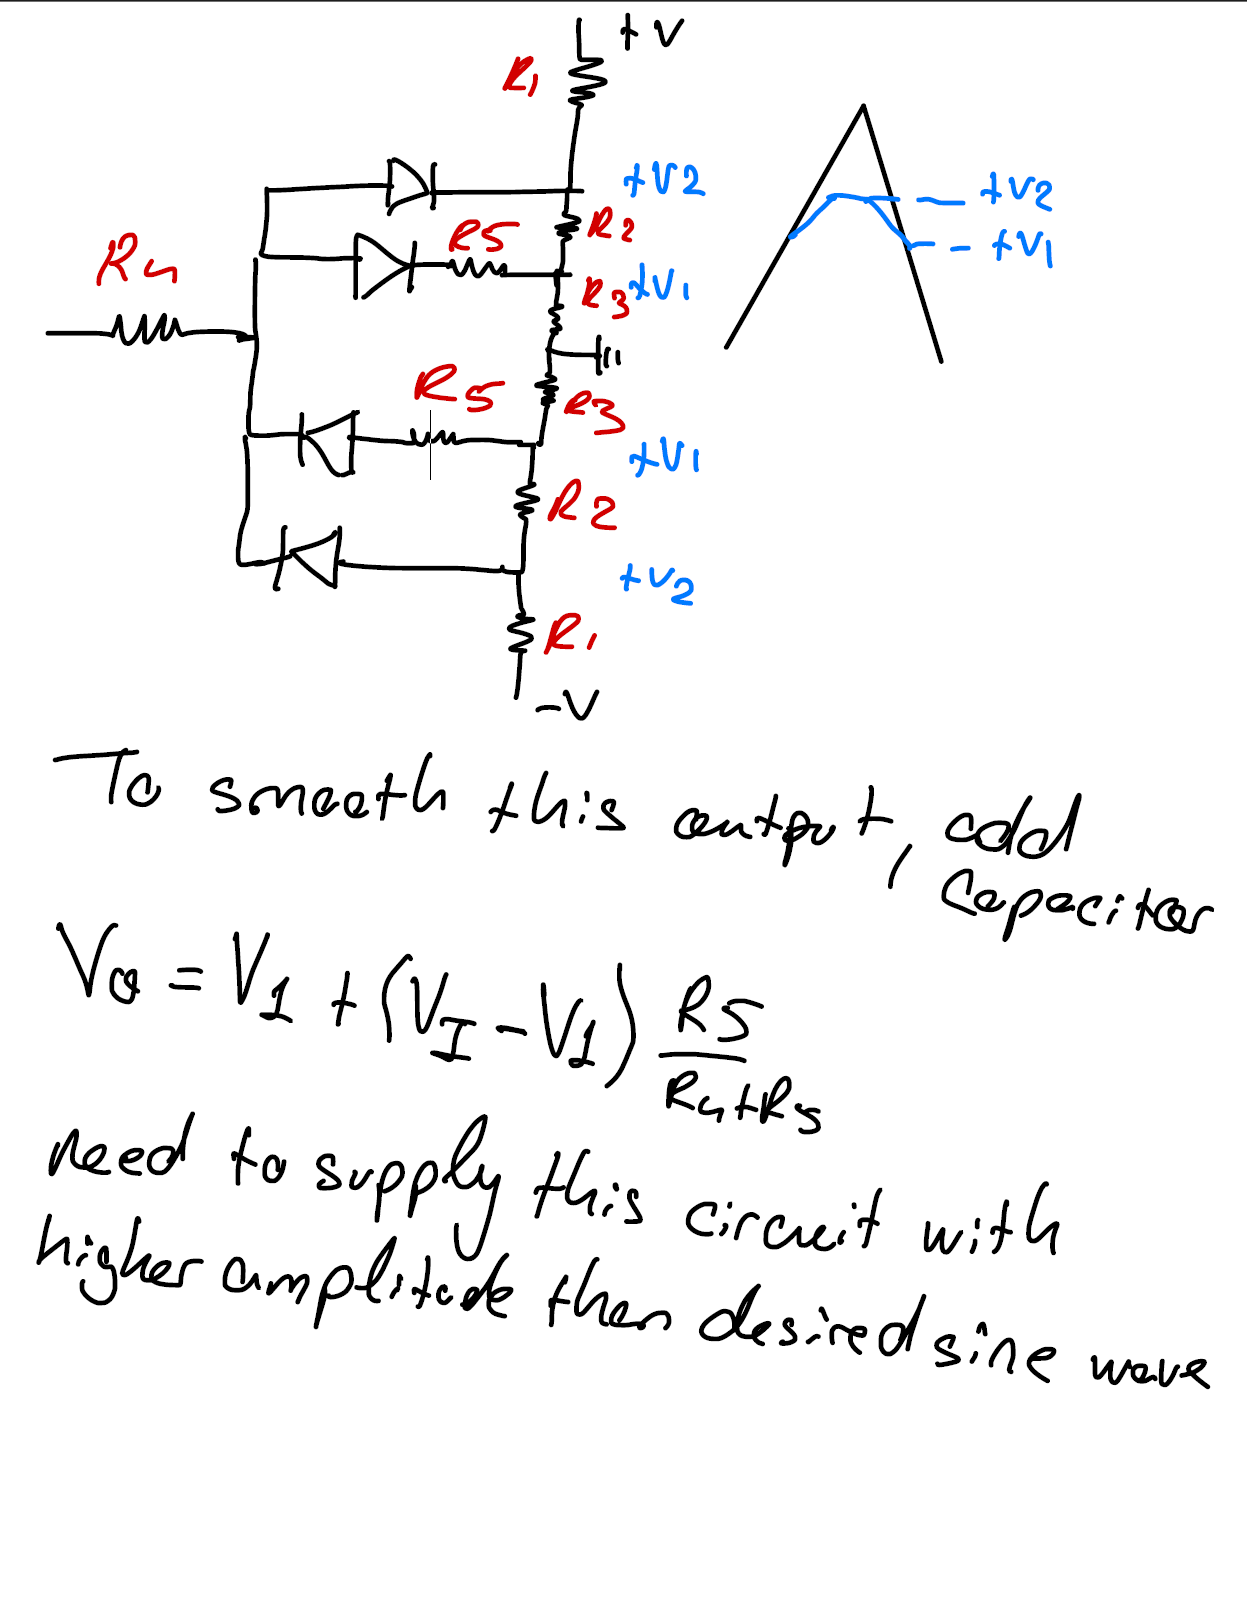 +V
R1
+V2
+V2
R2
R5
+V1
R4
R3
+V1
R5
R3
+V1
R2
+V2
R1
-V
To smooth this output, add
capacitor
Vo = V1 + (VI - V1) R5
R4+R5
need to supply this circuit with
higher amplitude then desired sine wave